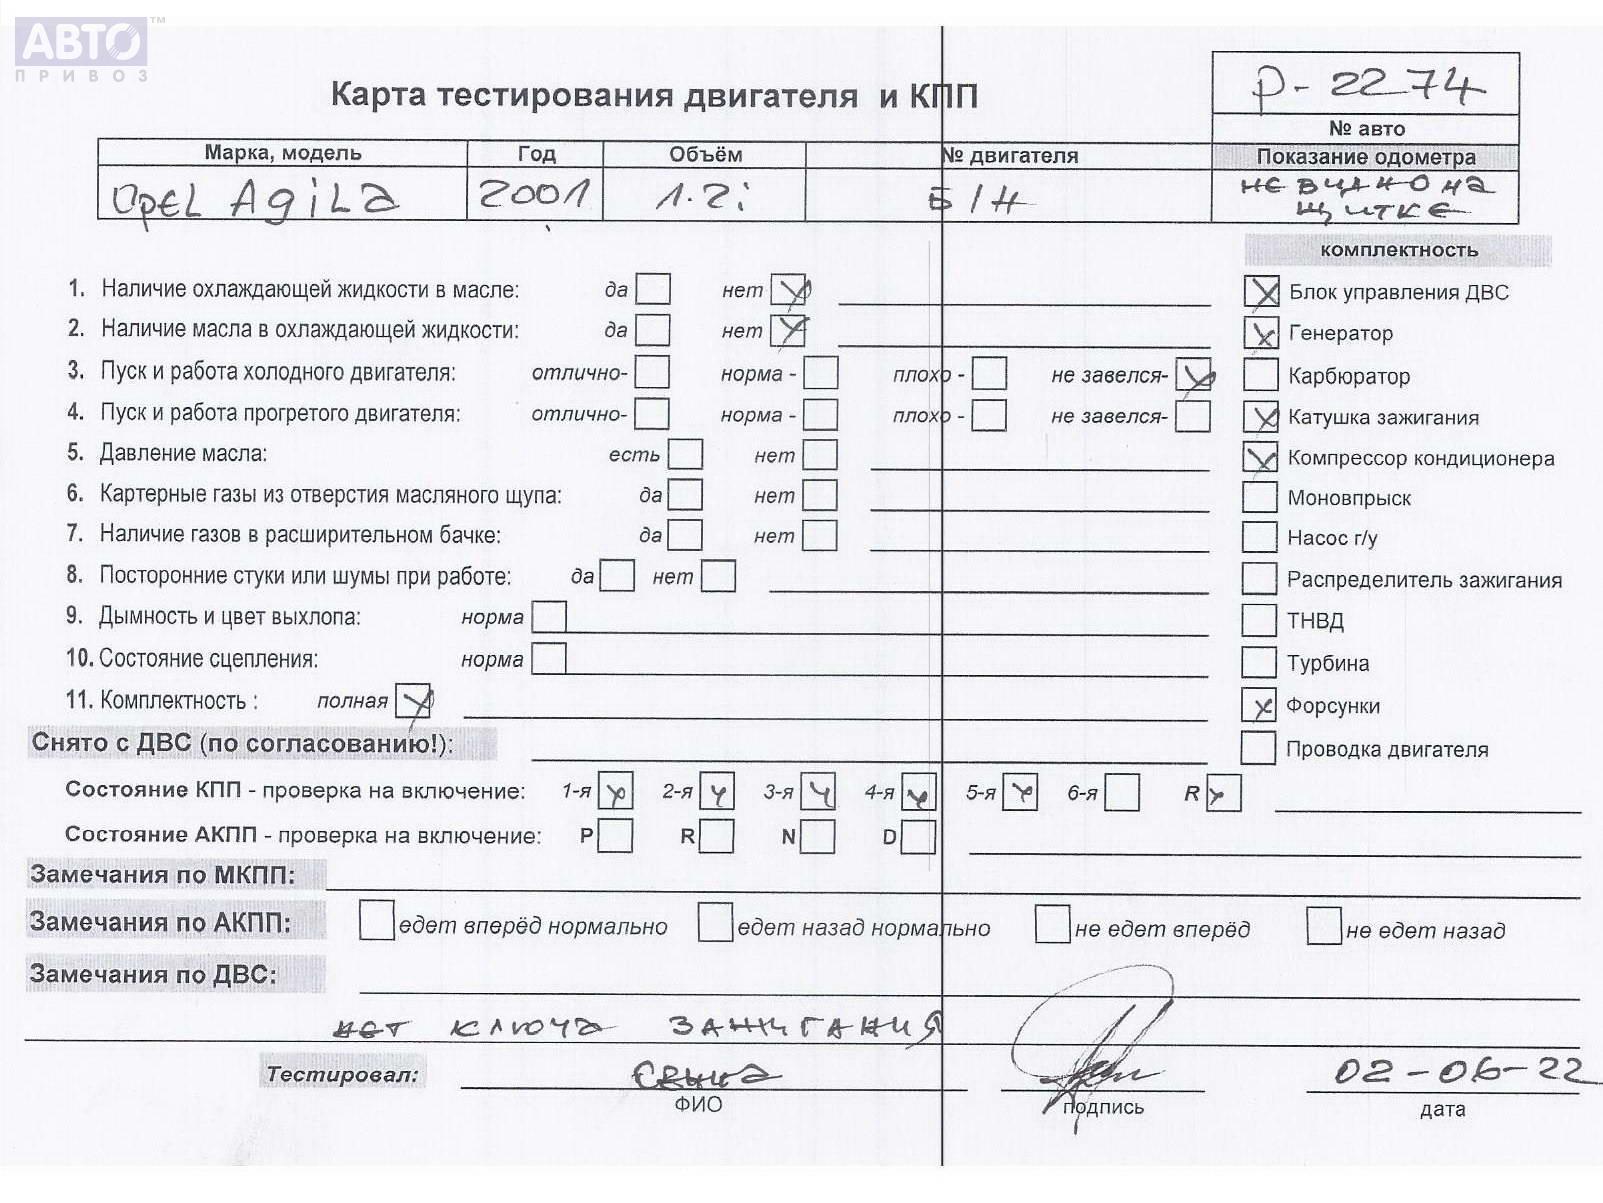 АВТО™
ПРИВОЗ
Карта тестирования двигателя и КПП
р-2274
№ авто
Марка, модель Год Объём № двигателя Показание одометра
Opel Agila 2001 1.2i Б/Н не видно на
щитке
комплектность
1. Наличие охлаждающей жидкости в масле: да нет Блок управления ДВС
2. Наличие масла в охлаждающей жидкости: да нет Генератор
3. Пуск и работа холодного двигателя: отлично- норма - плохо - не завелся- Карбюратор
4. Пуск и работа прогретого двигателя: отлично- норма - плохо - не завелся- Катушка зажигания
5. Давление масла: есть нет Компрессор кондиционера
6. Картерные газы из отверстия масляного щупа: да нет Моновпрыск
7. Наличие газов в расширительном бачке: да нет Насос г/у
8. Посторонние стуки или шумы при работе: да нет Распределитель зажигания
9. Дымность и цвет выхлопа: норма ТНВД
10. Состояние сцепления: норма Турбина
11. Комплектность : полная Форсунки
Снято с ДВС (по согласованию!): Проводка двигателя
Состояние КПП - проверка на включение: 1-я 2-я 3-я 4-я 5-я 6-я R
Состояние АКПП - проверка на включение: P R N D
Замечания по МКПП:
Замечания по АКПП: едет вперёд нормально едет назад нормально не едет вперёд не едет назад
Замечания по ДВС:
нет ключа зажигания
Тестировал: 02-06-22
ФИО подпись дата